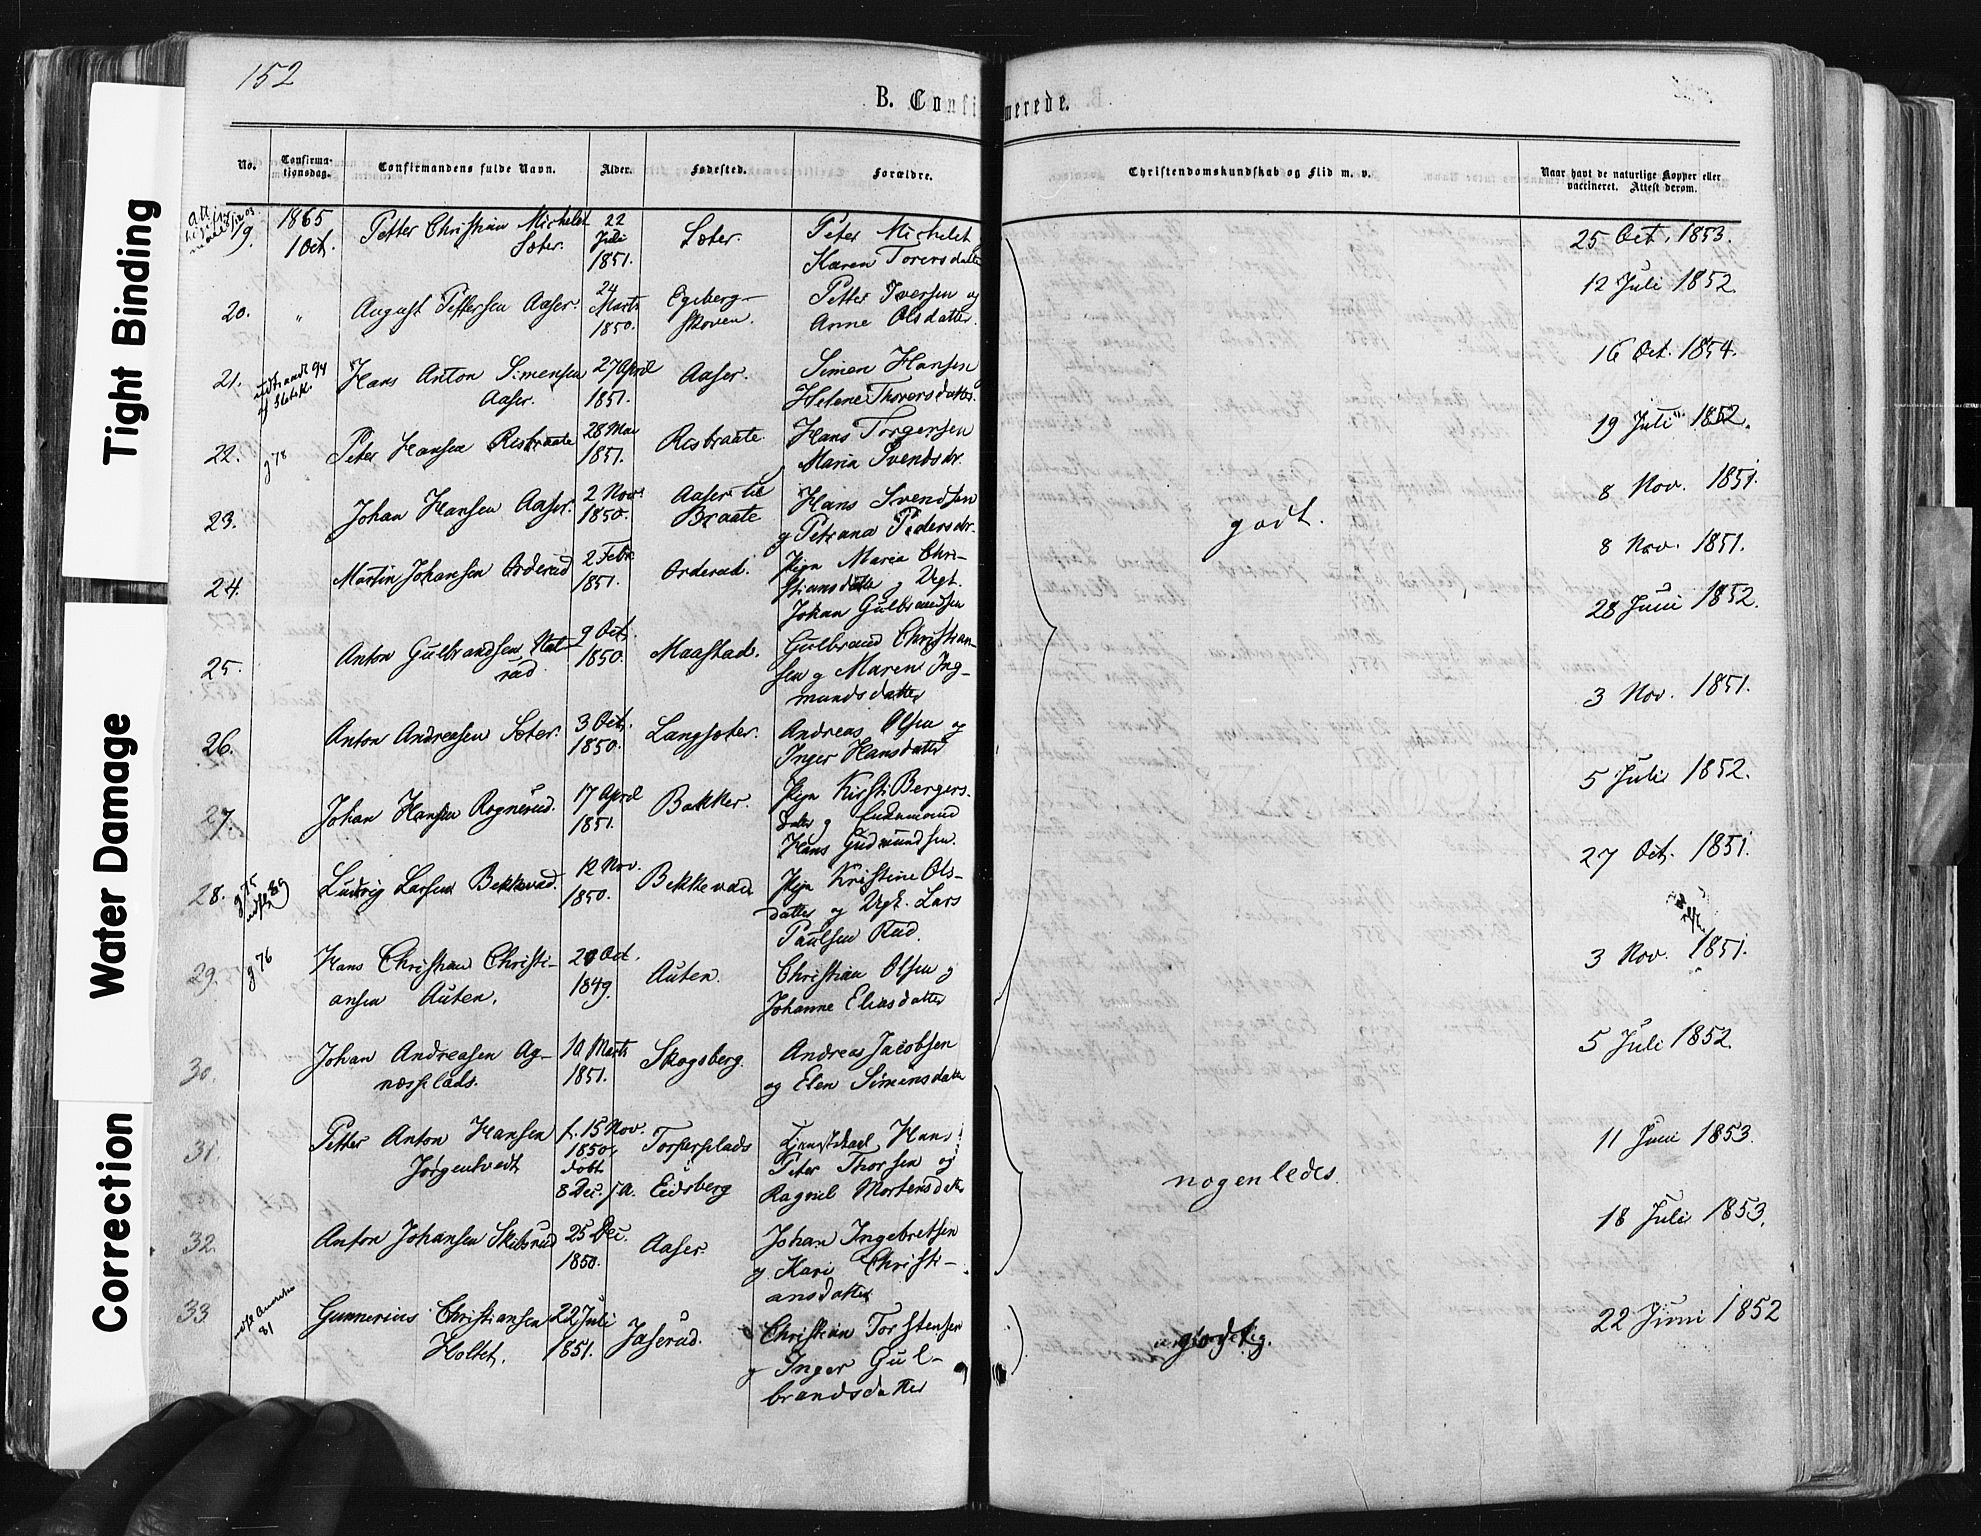 152
B. Confirmerede.
No. Confirmationsdag. Confirmandens fulde Navn. Alder. Fødested. Forældre. Christendomskundskab og Flid m. v. Naar havt de naturlige Kopper eller vaccineret. Attest derom.
19. 1865 Petter Christian Michelet 22 Peter Michelet
1 Oct. Sæter. Juli Sæter. 25 Oct. 1853.
1851. Karen Torersdatter
20. " August Pettersen Aaser. 24 Marts 1850. Egeberg- Petter Iversen og 12 Juli 1852.
skoven. Anne Olsdatter
21. Hans Anton Simensen 27 April Aaser. Simen Hansen 16 Oct. 1854.
Aaser. 1851. Helene Thorersdatter
22. g 78 Peter Hansen Risbraate 28 Mai Risbraate Hans Torgersen 19 Juli 1852.
1851. Maria Svendsdr.
23. Johan Hansen Aaser. 2 Nov. Aaser Hans Svendsen 8 Nov. 1851.
1850. Braate g Petrana Pedersdr. godt.
24. Martin Johansen Orderud 2 Febr. Orderud. Pign Maria Chri- 8 Nov. 1851.
1851. stiansdatter g Ugk.
Johan Gulbrandsen
25. Anton Gulbrandsen 9 Oct. Maastad. Gulbrand Christian- 28 Juni 1852.
rud 1850. sen g Maren Ing-
mundsdatter
26. Anton Andreasen Sæter. 3 Oct. Langsæter. Andreas Olsen og 3 Nov. 1851.
1850. Inger Hansdatter
27. Johan Hansen Rognerud. 17 April Bakker. Pign Kirsti Bergers- 5 Juli 1852.
1851. datter g
Hans Gudmundsen.
28. g 75 Ludvig Larsen Bekkevad. 12 Nov. Bekkevad Pign Kristine Ols- 27 Oct. 1851.
1850. datter og Ugk. Lars
Paulsen Rud.
29. g 76 Hans Christian Christi- Oct. Auten. Christian Olsen g 3 Nov. 1851.
ansen Auten. 1849. Johanne Eliasdatter
30. Johan Andreasen Ag- 10 Marts Skogsberg. Andreas Jacobsen 5 Juli 1852.
næsplads. 1851. og Elen Simensdatter
31. Petter Anton Hansen f. 15 Nov. Hans 11 Juni 1853.
Jørgentvedt 1850, døbt Peter Thorsen og
8 Dec. s. A. Eidsberg Ragnil Mortensdatter nogenledes.
32. Anton Johansen Skibsrud 25 Dec. Aaser. Johan Ingebretsen 18 Juli 1853.
1850. g Kari Christi-
ansdatter
33. Gunnerius Christiansen 22 Juli Jaserud. Christian Torstensen 22 Juni 1852
81 Holtet. 1851. g Inger Gul-
brandsdatter
Tight Binding
Water Damage
Correction